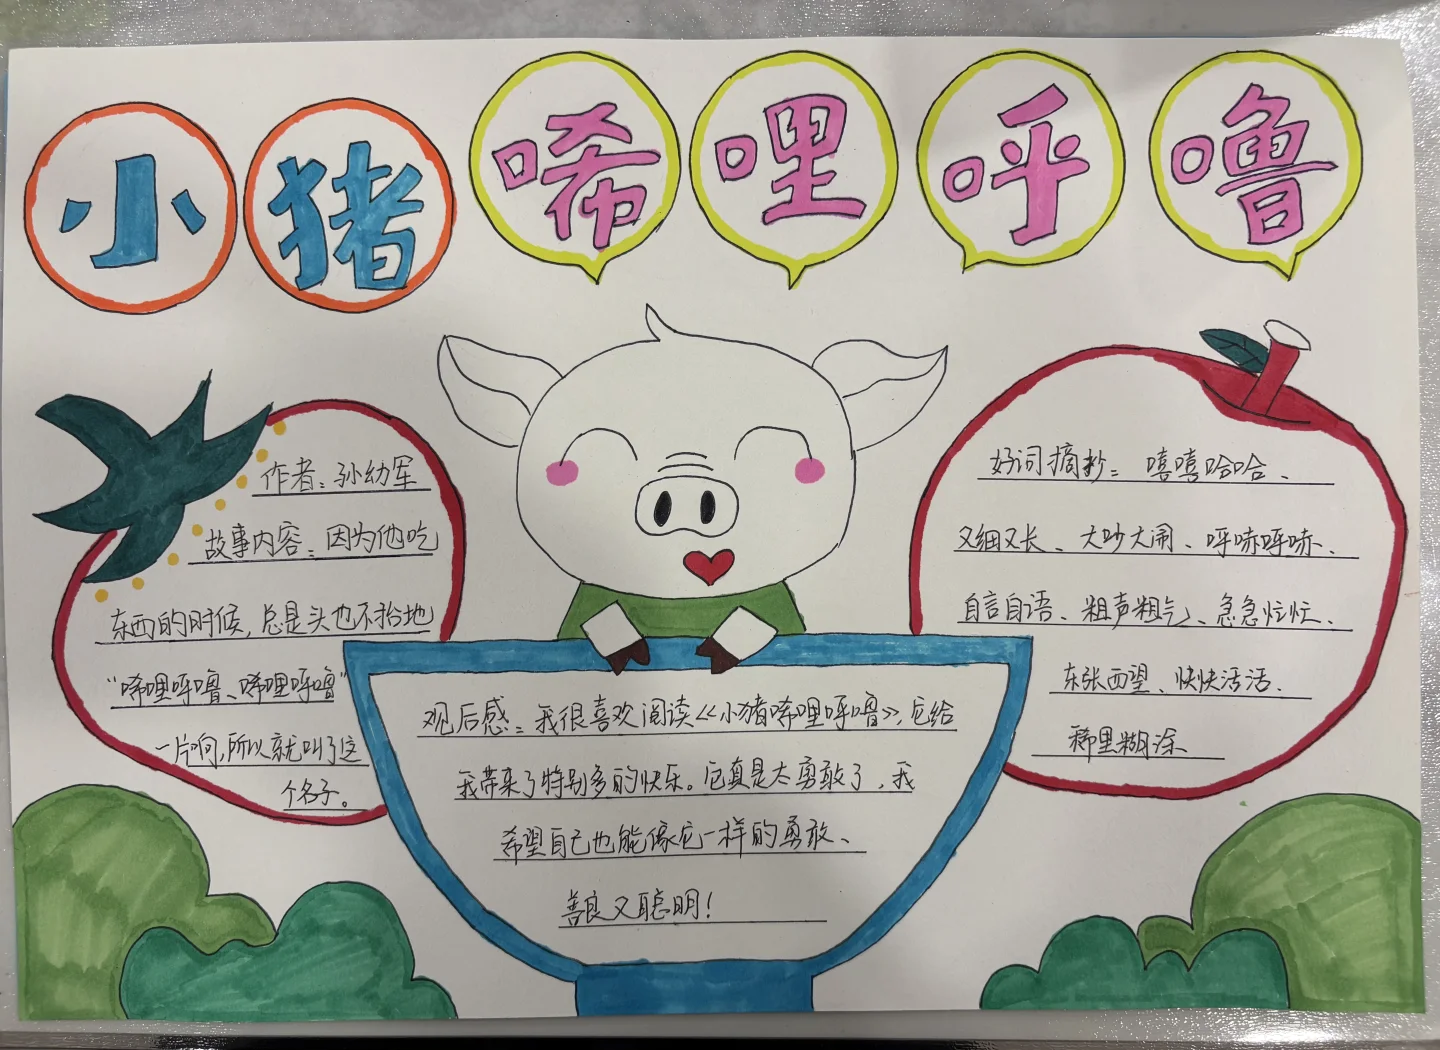 小猪唏哩呼噜
作者：孙幼军
故事内容：因为他吃
东西的时候，总是头也不抬地
“唏哩呼噜、唏哩呼噜”
一片响，所以就叫了这
个名子。
观后感：我很喜欢阅读《小猪唏哩呼噜》，它给
我带来了特别多的快乐。它真是太勇敢了，我
希望自己也能像它一样的勇敢、
善良又聪明！
好词摘抄：嘻嘻哈哈、
又细又长、大吵大闹、呼哧呼哧、
自言自语、粗声粗气、急急忙忙、
东张西望、快快活活、
稀里糊涂